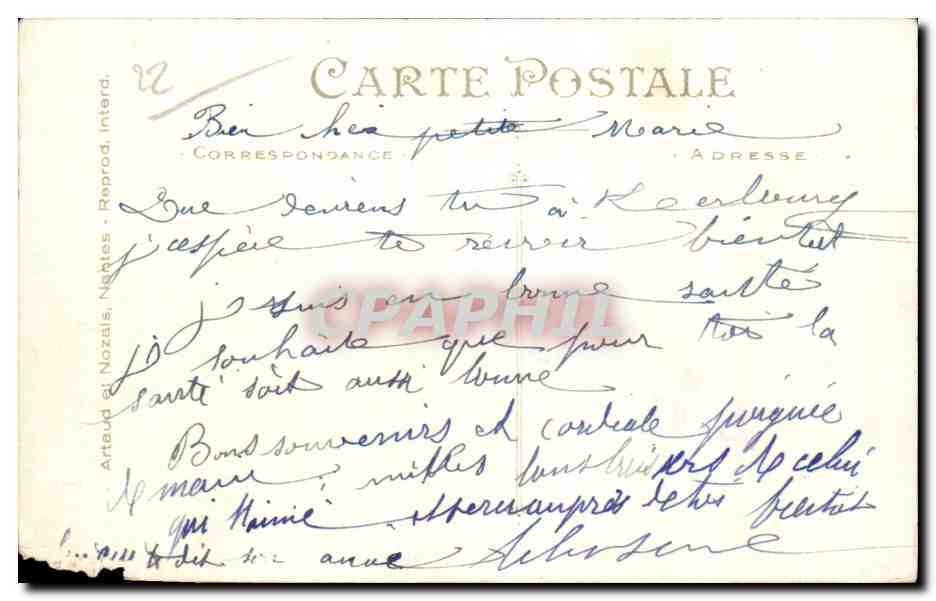 22
CARTE POSTALE
Bien petite Marie
CORRESPONDANCE
ADRESSE
Que deviens tu à
j'espère te revoir bientot
je suis en bonne santé
je souhaite que pour toi la
santé soit aussi bonne
Bons souvenirs et cordiale poignée
de main, milles bons de celui
qui t'aime auprès de toi bientot
te dit ami
Artaud et Nozais, Nantes - Reprod. Interd.
CPAPHIL